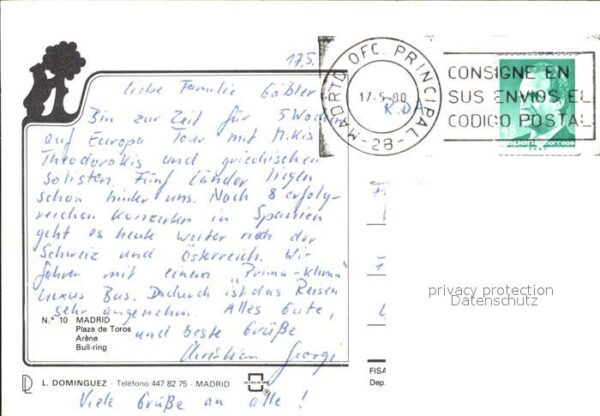 17.5.
Liebe Familie Gäbler
Bin zur Zeit für 5 Wochen
auf Europa Tour mit Mikis
Theodorakis und griechischen
Solisten. Fünf Länder liegen
schon hinter uns. Nach 8 erfolg-
reichen Konzerten in Spanien
geht es heute weiter nach der
Schweiz und Österreich. Wir
fahren mit einem "Prima-Klima"
Luxus Bus. Dadurch ist das Reisen
sehr angenehm. Alles Gute,
und beste Grüße
Christian Georgi
Viele Grüße an alle!
N.° 10 MADRID
Plaza de Toros
Arène
Bull-ring
L. DOMINGUEZ - Teléfono 447 82 75 - MADRID
MADRID OFC. PRINCIPAL
17-5-90
-28-
CONSIGNE EN
SUS ENVIOS EL
CODIGO POSTAL
España correos
privacy protection
Datenschutz
FISA
Dep.